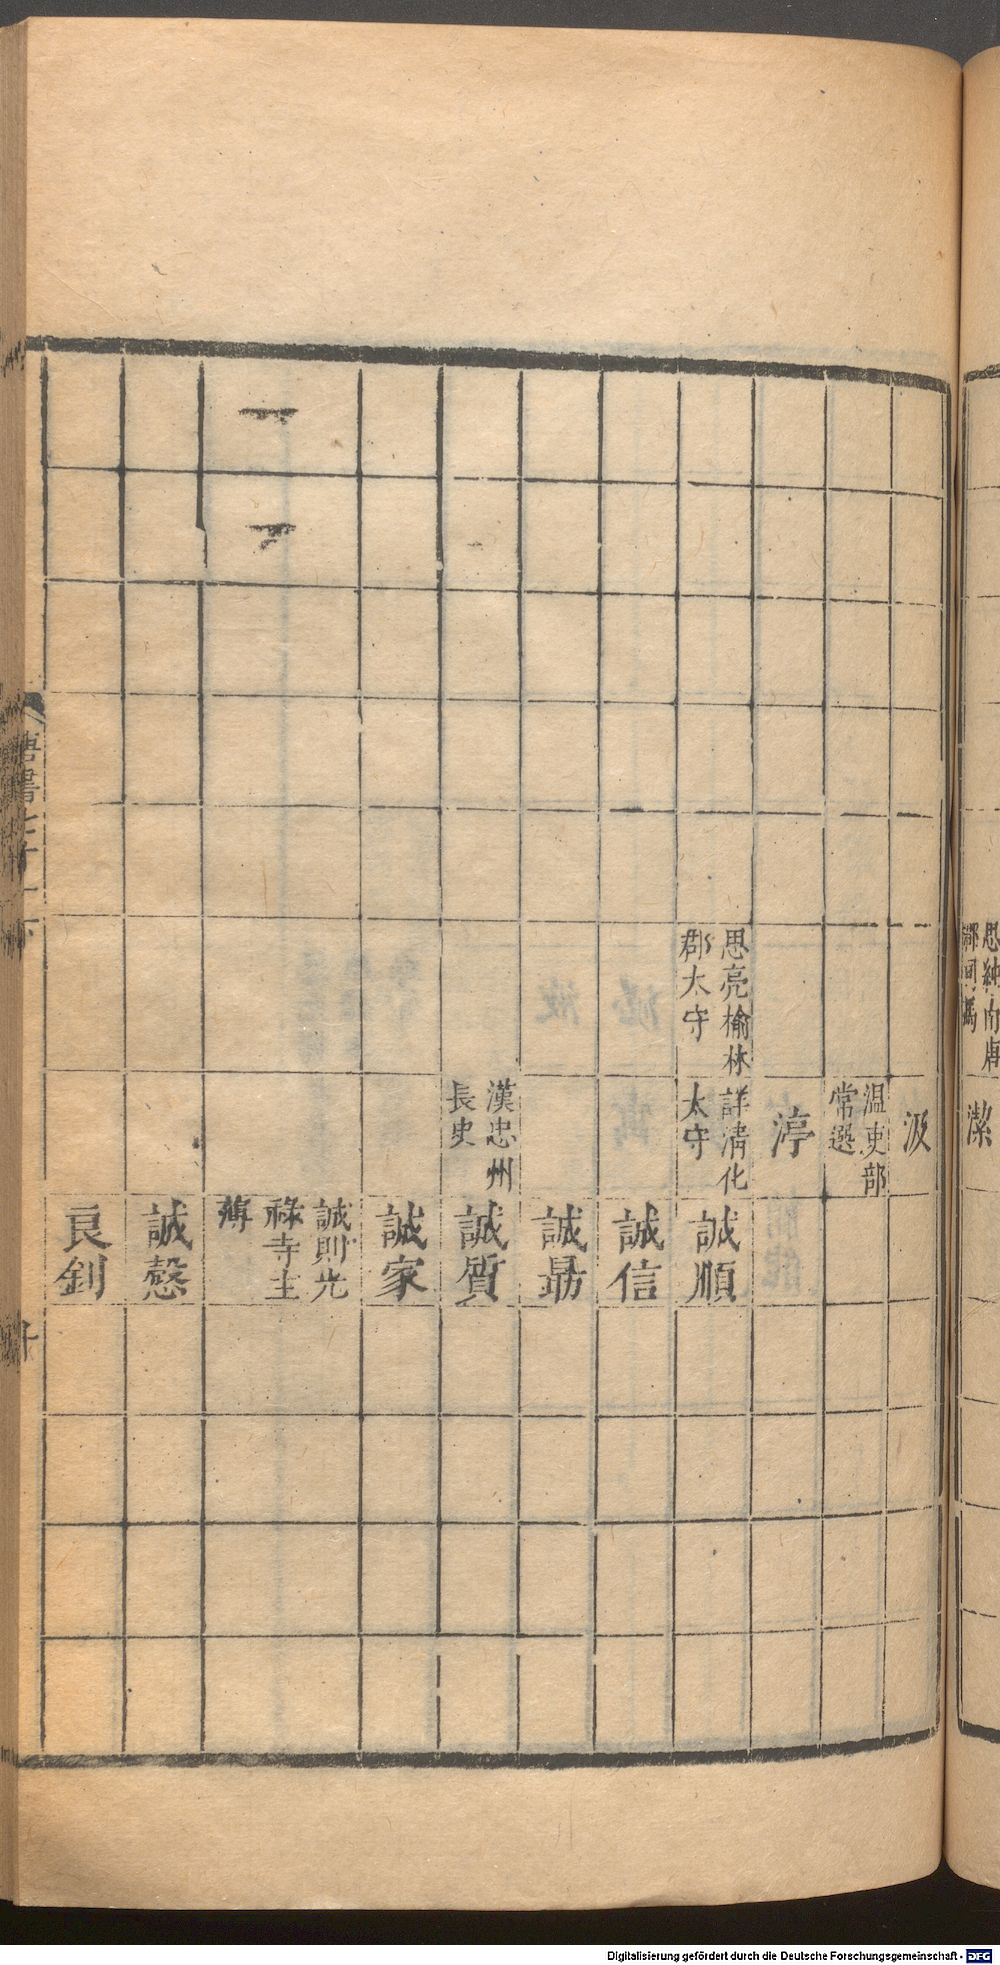 思納南唐
潔
汲
温吏部
常選
渟
思亮榆林
郡太守
詳清化
太守
誠順
誠信
誠勗
漢忠州
長史
誠質
誠家
誠則光
祿寺主
薄
誠慤
良釗
唐書七十一下
Digitalisierung gefördert durch die Deutsche Forschungsgemeinschaft - DFG